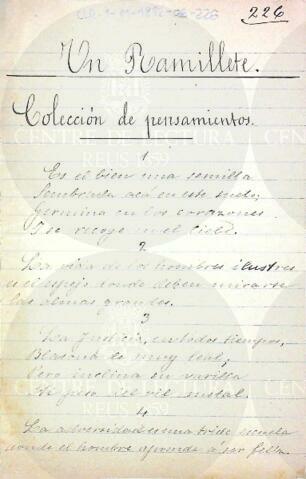 226
Un Ramillete.
Colección de pensamientos.
1
Es el bien una semilla
Sembrada acá en este suelo,
germina en los corazones
Y se recoge en el Cielo.
2
La vida de los hombres ilustres
es el espejo donde deben mirarse
las almas grandes.
3
La Justicia, en todos tiempos,
Blasonó de muy leal;
Pero inclina su varilla
Al peso del vil metal.
4
La adversidad es una triste escuela
donde el hombre aprende á ser feliz.
CENTRE DE LECTURA
REUS 1859